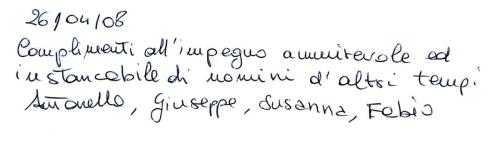 26/04/08
Complimenti all'impegno ammirevole ed
instancabile di uomini d'altri tempi
Antonello, Giuseppe, Susanna, Fabio